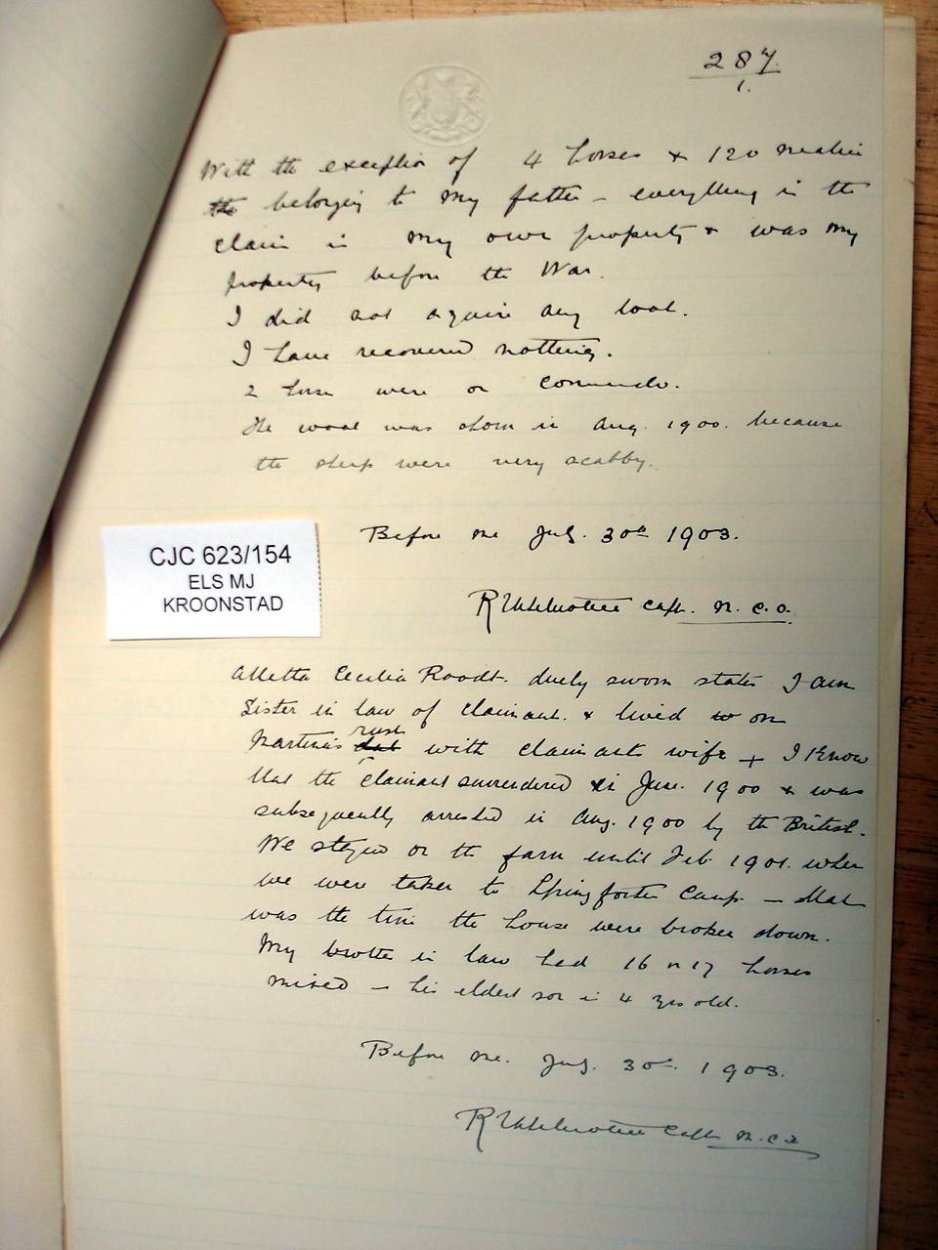 287.
1.
With the exception of 4 horses & 120 mealies
the belonging to my father – everything in the
claim is my own property & was my
property before the War.
I did not acquire any loot.
I have recovered nothing.
2 horses were on commando.
The wool was shorn in Aug. 1900. because
the sheep were very scabby.
Before me July. 30th 1903.
Capt. N.C.O.
CJC 623/154
ELS MJ
KROONSTAD
Alletta Cecilia Roodt. duely sworn states I am
Sister in law of claimant. & lived on
Martinus rust with claimants wife + I know
that the claimant surrendered in June. 1900 & was
subsequently arrested in Aug. 1900 by the British.
We stayed on the farm until Feb. 1901. when
we were taken to Springfontein Camp – that
was the time the house were broken down.
My brother in law had 16 or 17 horses
mixed – his eldest son is 4 yrs old.
Before me. July. 30th 1903.
Capt N.C.O